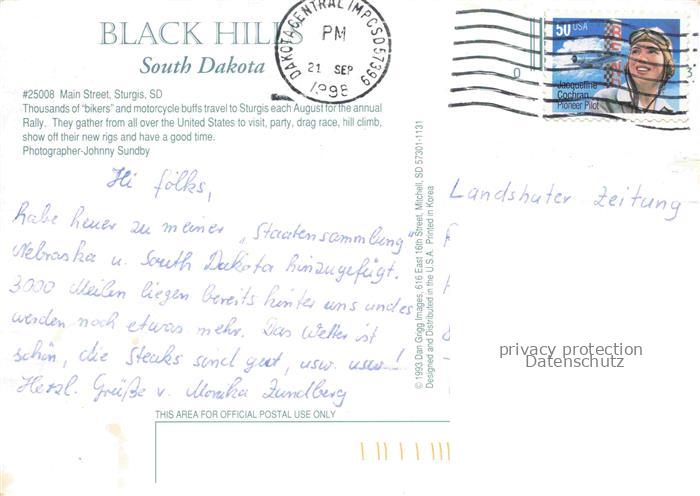 BLACK HILLS
South Dakota
DAKOTA CENTRAL IMPC SD 57399
PM
21 SEP
1998
50 USA
Jacqueline
Cochran
Pioneer Pilot
#25008 Main Street, Sturgis, SD
Thousands of "bikers" and motorcycle buffs travel to Sturgis each August for the annual
Rally. They gather from all over the United States to visit, party, drag race, hill climb,
show off their new rigs and have a good time.
Photographer-Johnny Sundby
Hi folks,
habe heuer zu meiner „Staatensammlung"
Nebraska u. South Dakota hinzugefügt.
3000 Meilen liegen bereits hinter uns und es
werden noch etwas mehr. Das Wetter ist
schön, die Steaks sind gut, usw. usw.!
Herzl. Grüße v. Monika Zundberg
© 1993 Dan Grigg Images, 616 East 16th Street, Mitchell, SD 57301-1131
Designed and Distributed in the U.S.A. Printed in Korea
Landshuter Zeitung
privacy protection
Datenschutz
THIS AREA FOR OFFICIAL POSTAL USE ONLY